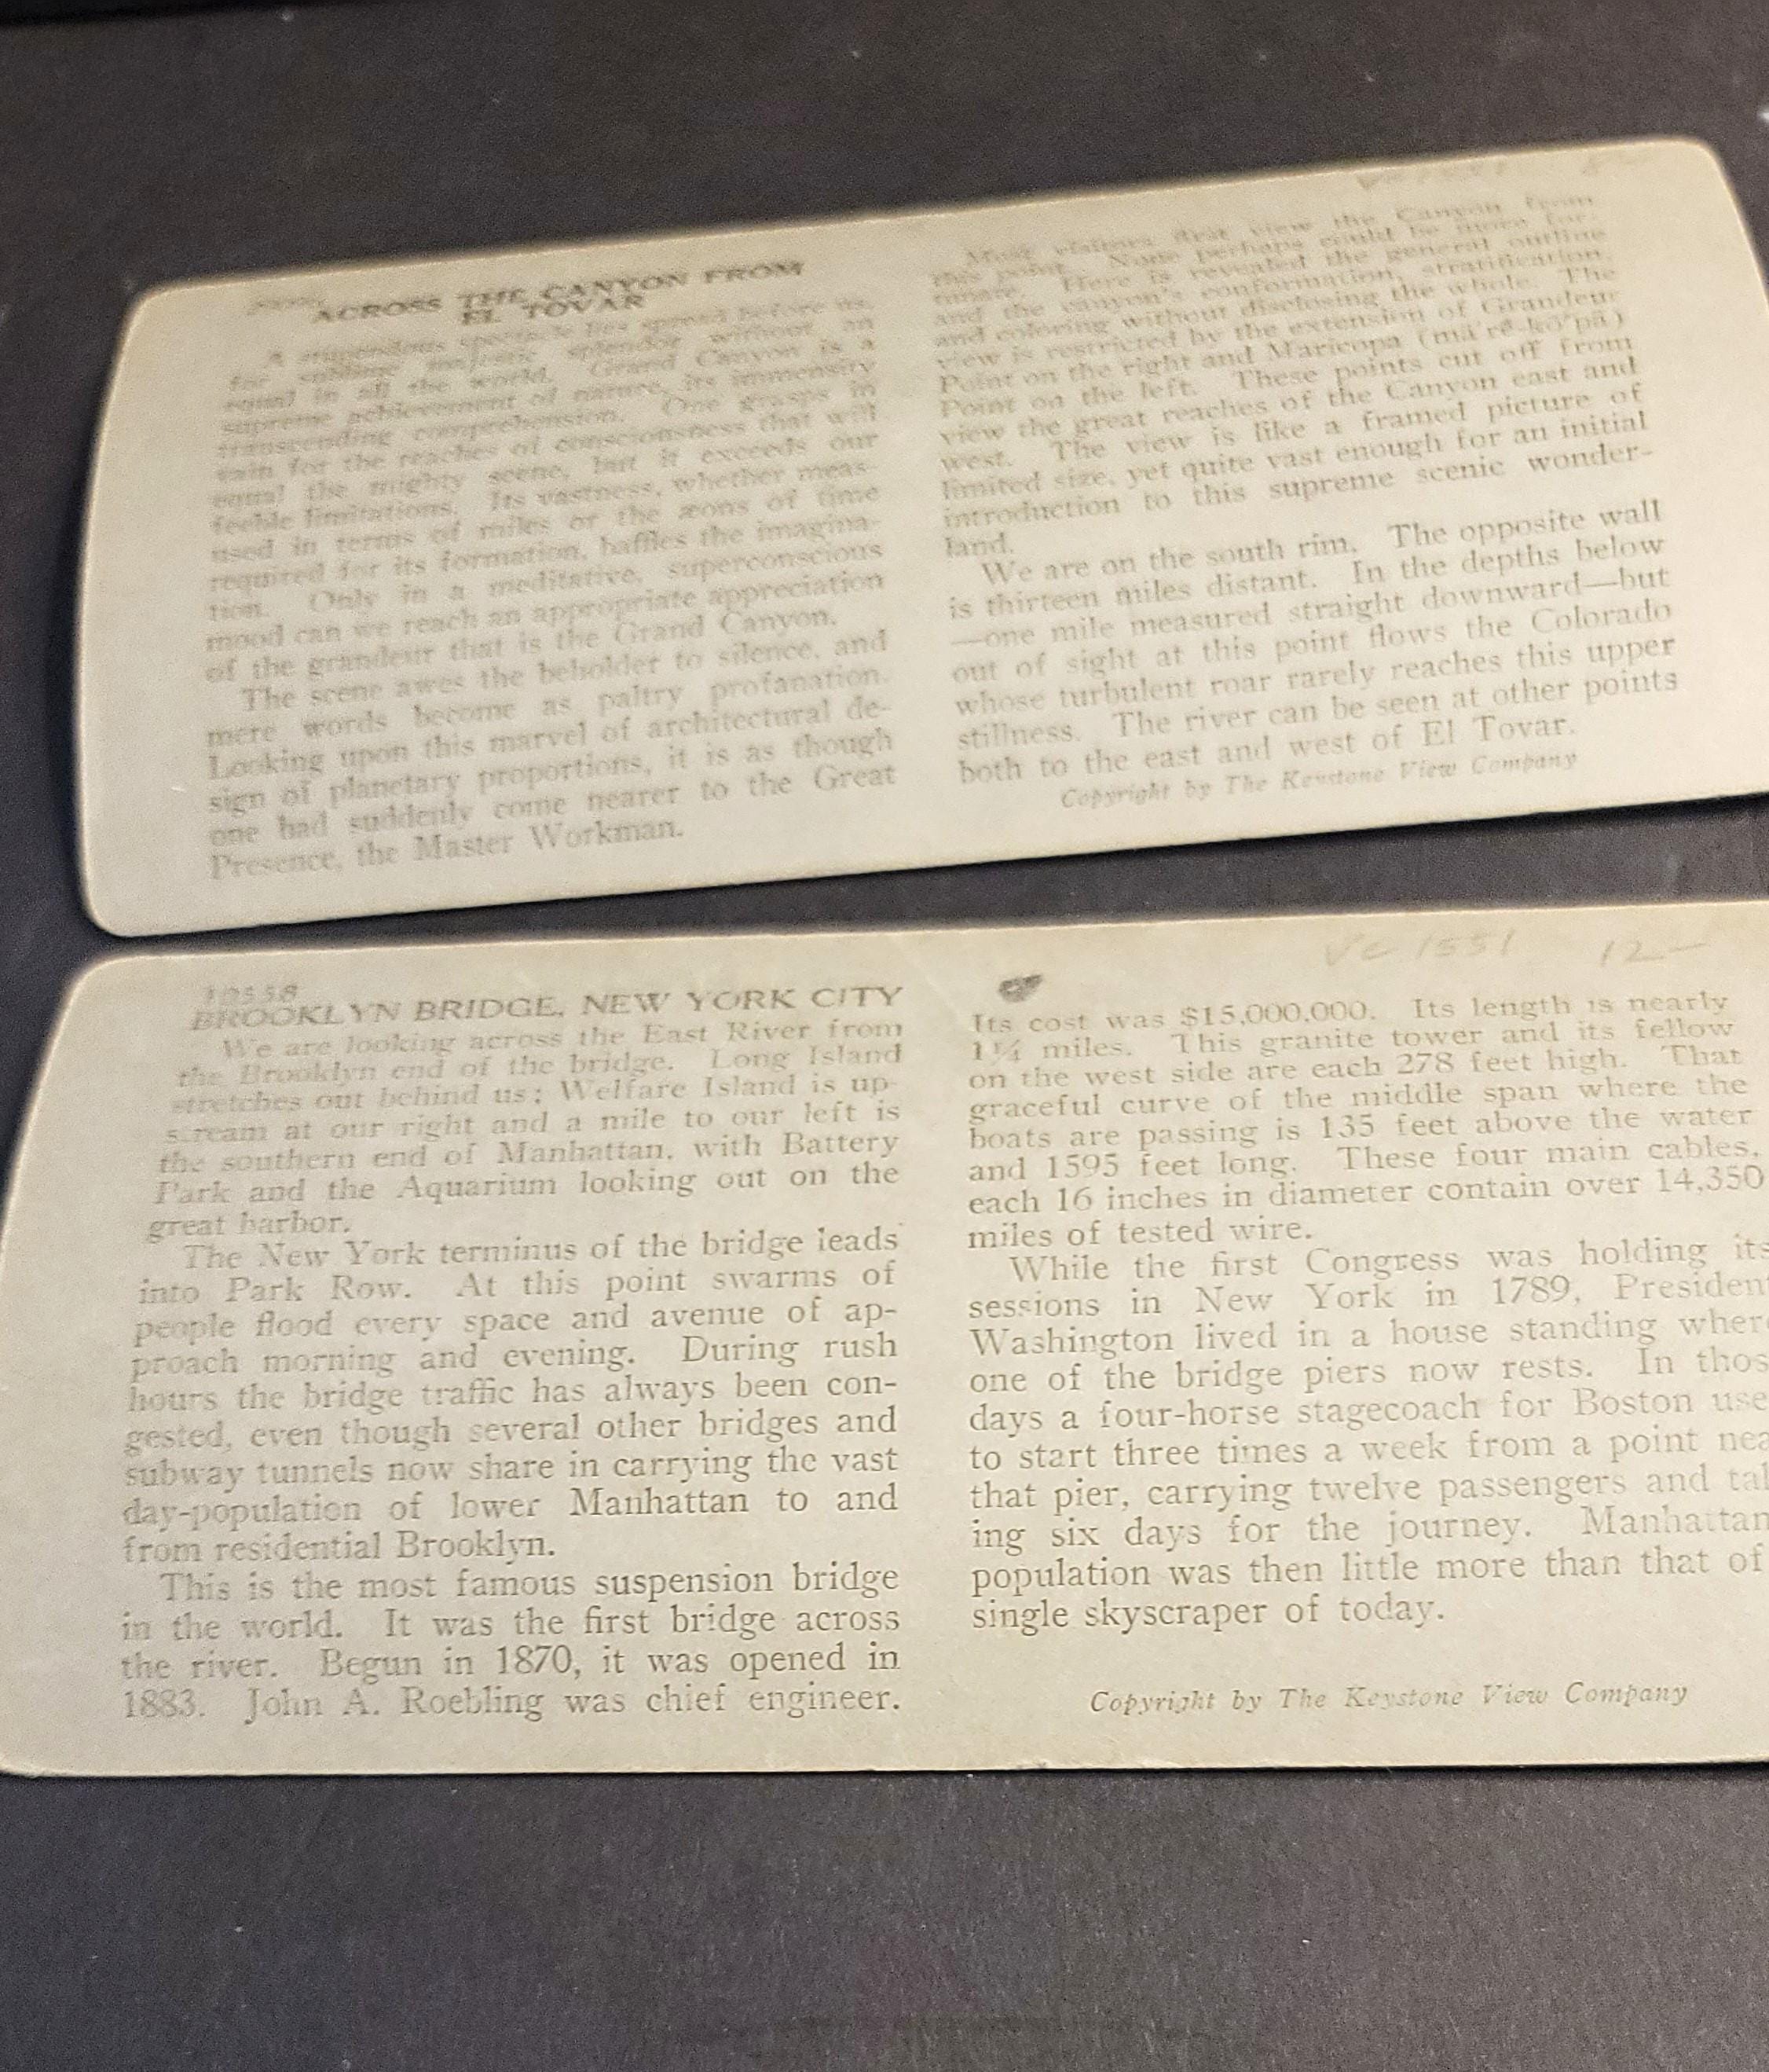 ACROSS THE CANYON FROM
EL TOVAR
A stupendous spectacle lies spread before us,
for sublime majestic splendor without an
equal in all the world. Grand Canyon is a
supreme achievement of nature, its immensity
transcending comprehension. One grasps in
vain for the reaches of consciousness that will
equal the mighty scene, but it exceeds our
feeble limitations. Its vastness, whether meas-
ured in terms of miles or the æons of time
required for its formation, baffles the imagina-
tion. Only in a meditative, superconscious
mood can we reach an appropriate appreciation
of the grandeur that is the Grand Canyon.
The scene awes the beholder to silence, and
mere words become as paltry profanation.
Looking upon this marvel of architectural de-
sign of planetary proportions, it is as though
one had suddenly come nearer to the Great
Presence, the Master Workman.
Most visitors first view the Canyon from
this point. None perhaps could be more for-
tunate. Here is revealed the general outline
and the canyon's conformation, stratification,
and coloring without disclosing the whole. The
view is restricted by the extension of Grandeur
Point on the right and Maricopa (mă'rĕ-kō'pȧ)
Point on the left. These points cut off from
view the great reaches of the Canyon east and
west. The view is like a framed picture of
limited size, yet quite vast enough for an initial
introduction to this supreme scenic wonder-
land.
We are on the south rim. The opposite wall
is thirteen miles distant. In the depths below
—one mile measured straight downward—but
out of sight at this point flows the Colorado
whose turbulent roar rarely reaches this upper
stillness. The river can be seen at other points
both to the east and west of El Tovar.
Copyright by The Keystone View Company
10558
BROOKLYN BRIDGE, NEW YORK CITY
We are looking across the East River from
the Brooklyn end of the bridge. Long Island
stretches out behind us; Welfare Island is up-
stream at our right and a mile to our left is
the southern end of Manhattan, with Battery
Park and the Aquarium looking out on the
great harbor.
The New York terminus of the bridge leads
into Park Row. At this point swarms of
people flood every space and avenue of ap-
proach morning and evening. During rush
hours the bridge traffic has always been con-
gested, even though several other bridges and
subway tunnels now share in carrying the vast
day-population of lower Manhattan to and
from residential Brooklyn.
This is the most famous suspension bridge
in the world. It was the first bridge across
the river. Begun in 1870, it was opened in
1883. John A. Roebling was chief engineer.
VC 1551 12—
Its cost was $15,000,000. Its length is nearly
1¼ miles. This granite tower and its fellow
on the west side are each 278 feet high. That
graceful curve of the middle span where the
boats are passing is 135 feet above the water
and 1595 feet long. These four main cables,
each 16 inches in diameter contain over 14,350
miles of tested wire.
While the first Congress was holding its
sessions in New York in 1789, President
Washington lived in a house standing wher
one of the bridge piers now rests. In thos
days a four-horse stagecoach for Boston use
to start three times a week from a point nea
that pier, carrying twelve passengers and tak
ing six days for the journey. Manhattan
population was then little more than that of
single skyscraper of today.
Copyright by The Keystone View Company